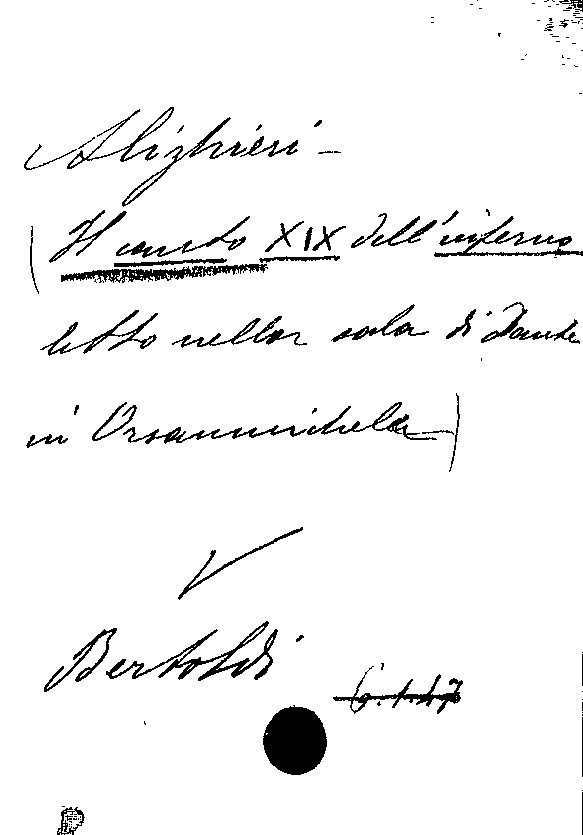 Alighieri -
(Il canto XIX dell'inferno
letto nella sala di Dante
in Orsanmichele)
V
Bertoldi
6.1.47